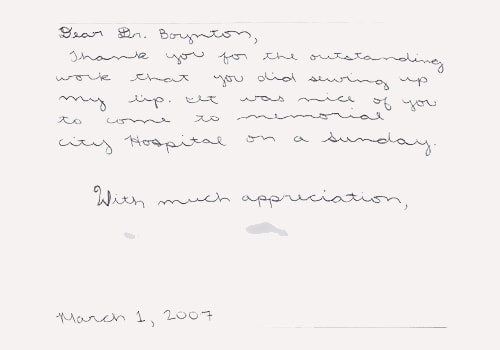 Dear Dr. Boynton,
Thank you for the outstanding
work that you did sewing up
my lip. It was nice of you
to come to memorial
city Hospital on a sunday.
With much appreciation,
March 1, 2007